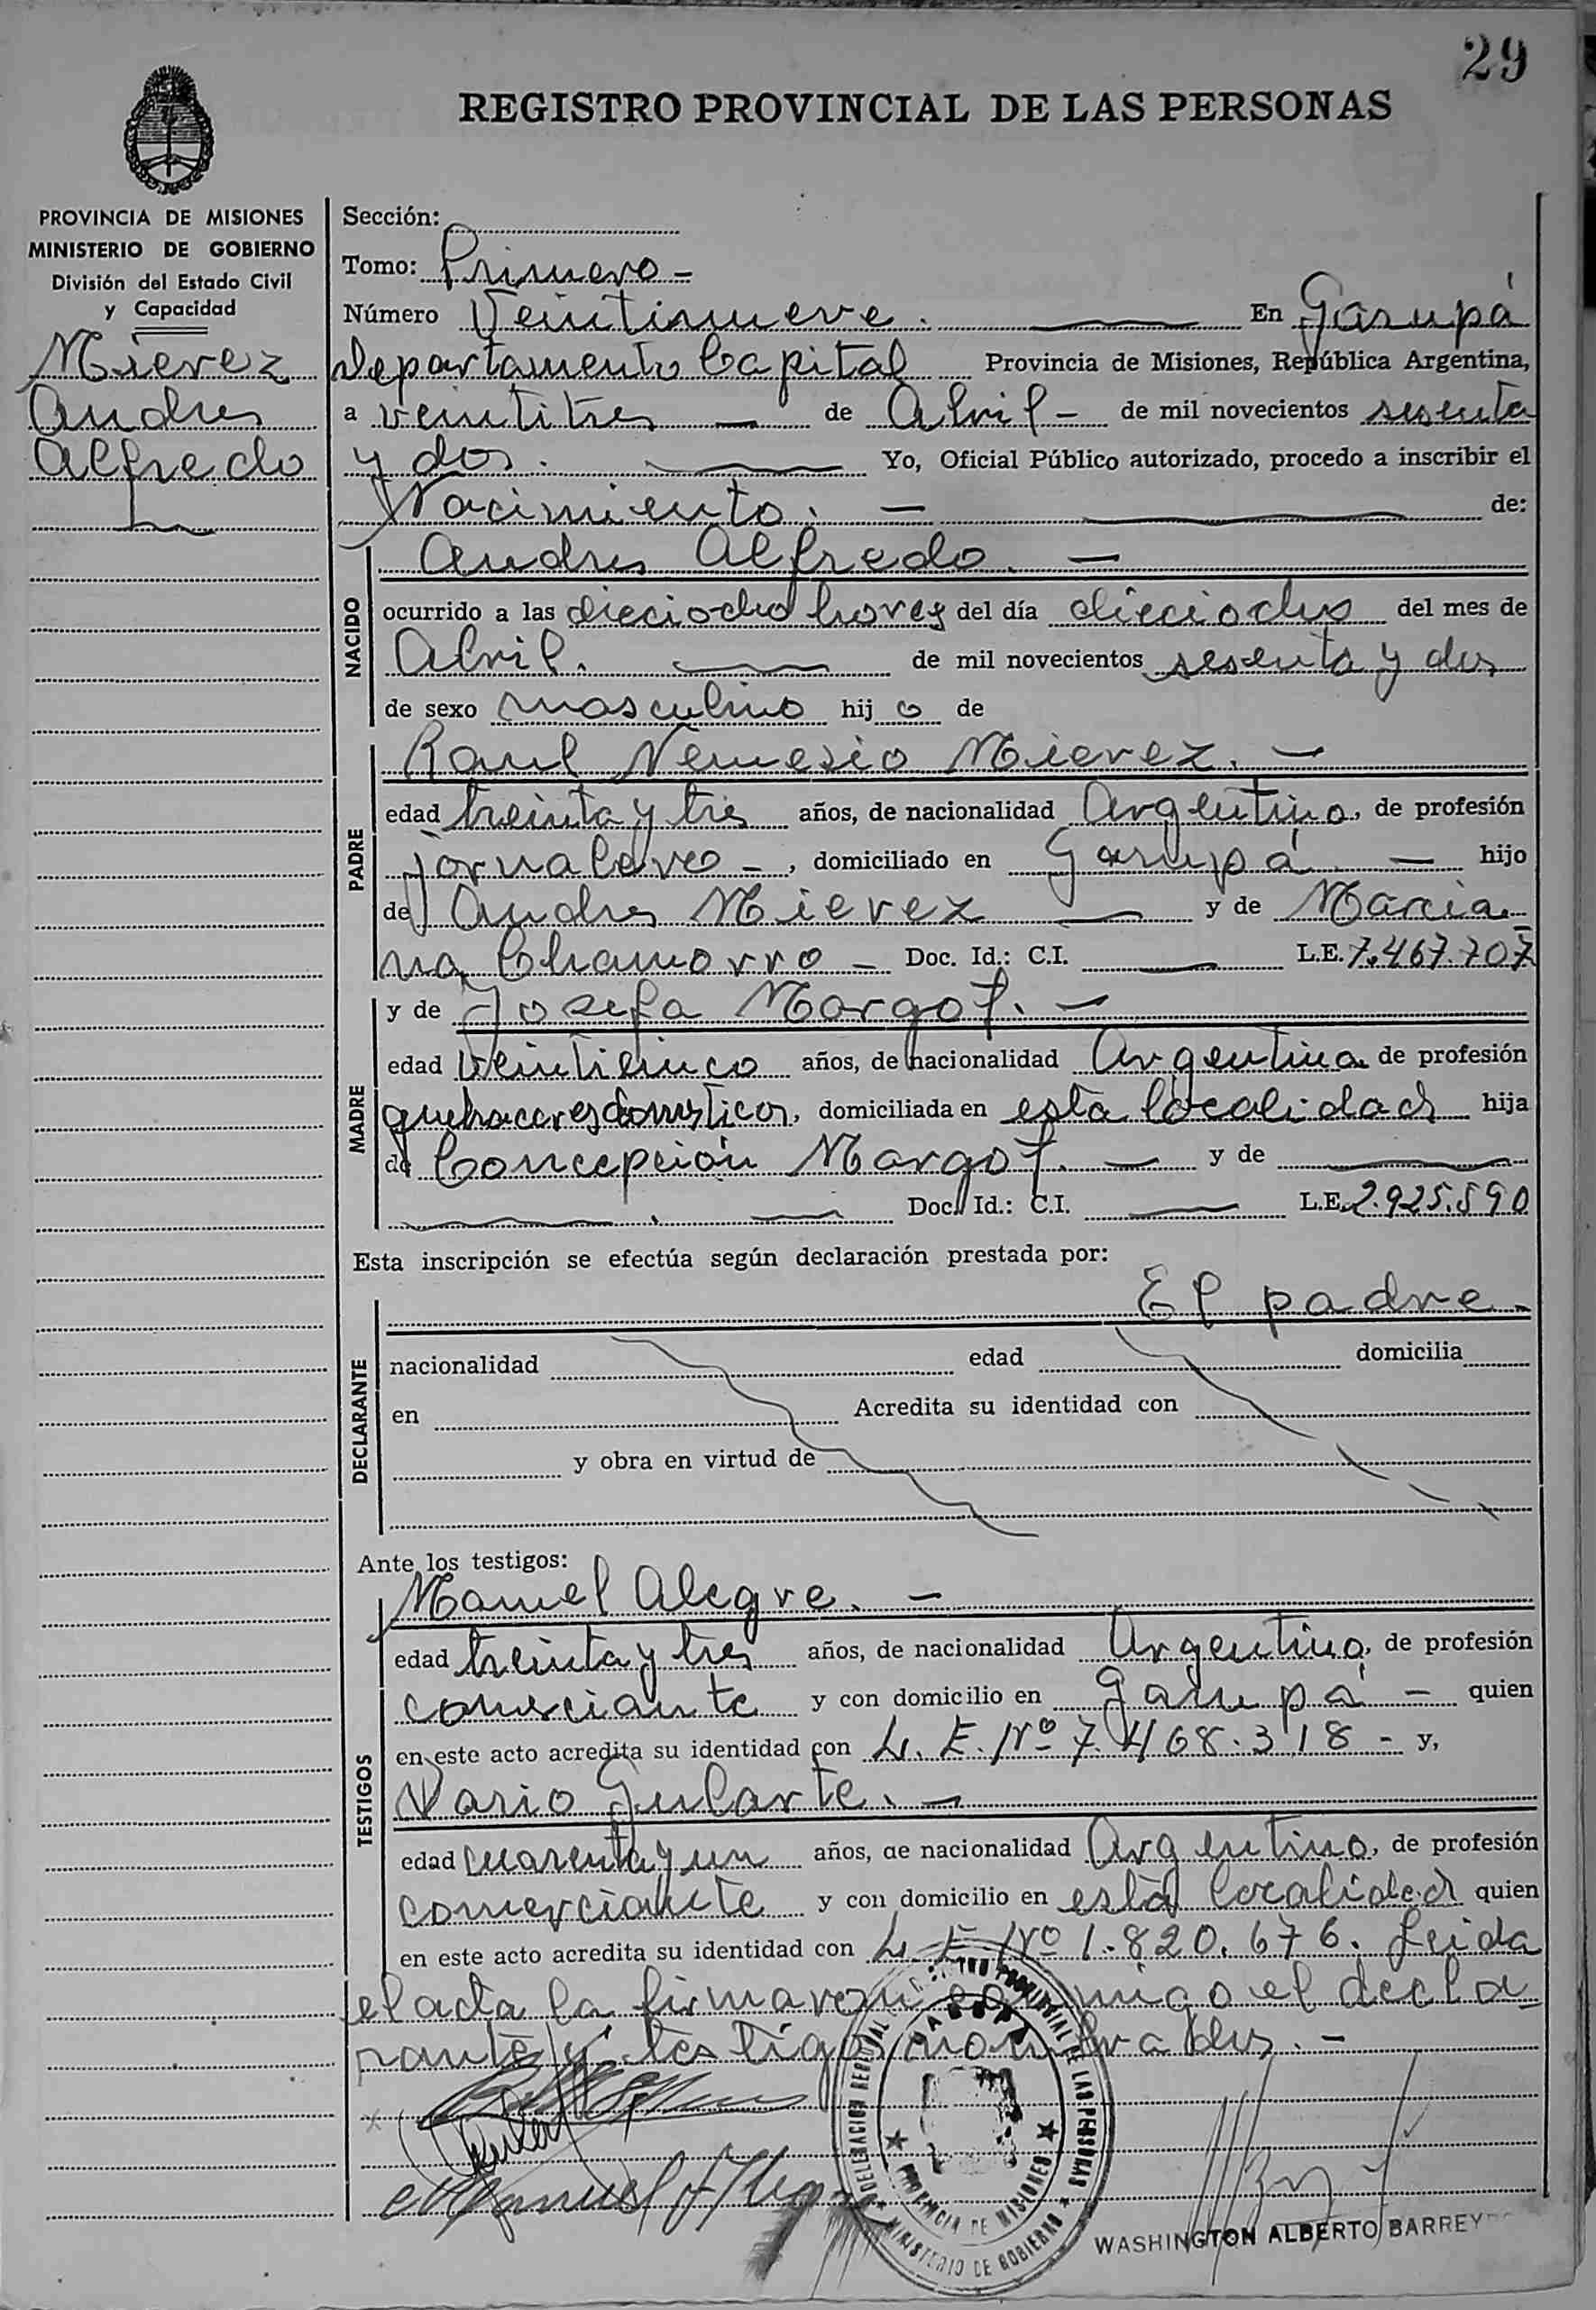 29
REGISTRO PROVINCIAL DE LAS PERSONAS
PROVINCIA DE MISIONES
MINISTERIO DE GOBIERNO
División del Estado Civil
y Capacidad
Mierez
Andres
Alfredo
Sección:
Tomo: Primero -
Número Veintinueve. En Garupá
Departamento Capital Provincia de Misiones, República Argentina,
a veintitres de Abril - de mil novecientos sesenta
y dos. Yo, Oficial Público autorizado, procedo a inscribir el
Nacimiento. - de:
NACIDO
Andres Alfredo. -
ocurrido a las dieciocho horas del día dieciocho del mes de
Abril. de mil novecientos sesenta y dos
de sexo masculino hijo de
PADRE
Raul Nemesio Mierez. -
edad treinta y tres años, de nacionalidad Argentino, de profesión
jornalero -, domiciliado en Garupá. - hijo
de Andres Mierez y de Marcia-
na Chamorro - Doc. Id.: C.I. L.E. 7.467.707
MADRE
y de Josefa Margot. -
edad veinticinco años, de nacionalidad Argentina de profesión
quehaceres domesticos, domiciliada en esta localidad hija
de Concepción Margot. - y de
Doc. Id.: C.I. L.E. 2.925.590
Esta inscripción se efectúa según declaración prestada por:
DECLARANTE
El padre -
nacionalidad edad domicilia
en Acredita su identidad con
y obra en virtud de
Ante los testigos:
TESTIGOS
Manuel Alegre. -
edad treinta y tres años, de nacionalidad Argentino, de profesión
comerciante y con domicilio en Garupá - quien
en este acto acredita su identidad con L. E. Nº 7.468.318 - y,
Dario Gularte. -
edad cuarenta y un años, de nacionalidad Argentino, de profesión
comerciante y con domicilio en esta localidad quien
en este acto acredita su identidad con L. E. Nº 1.820.676. Leida
el acta la firmaron conmigo el decla-
rante y testigos nombrados. -
DELEGACION REGISTRO PROVINCIAL DE LAS PERSONAS
GARUPA
PROVINCIA DE MISIONES
MINISTERIO DE GOBIERNO
Manuel Alegre
WASHINGTON ALBERTO BARREY